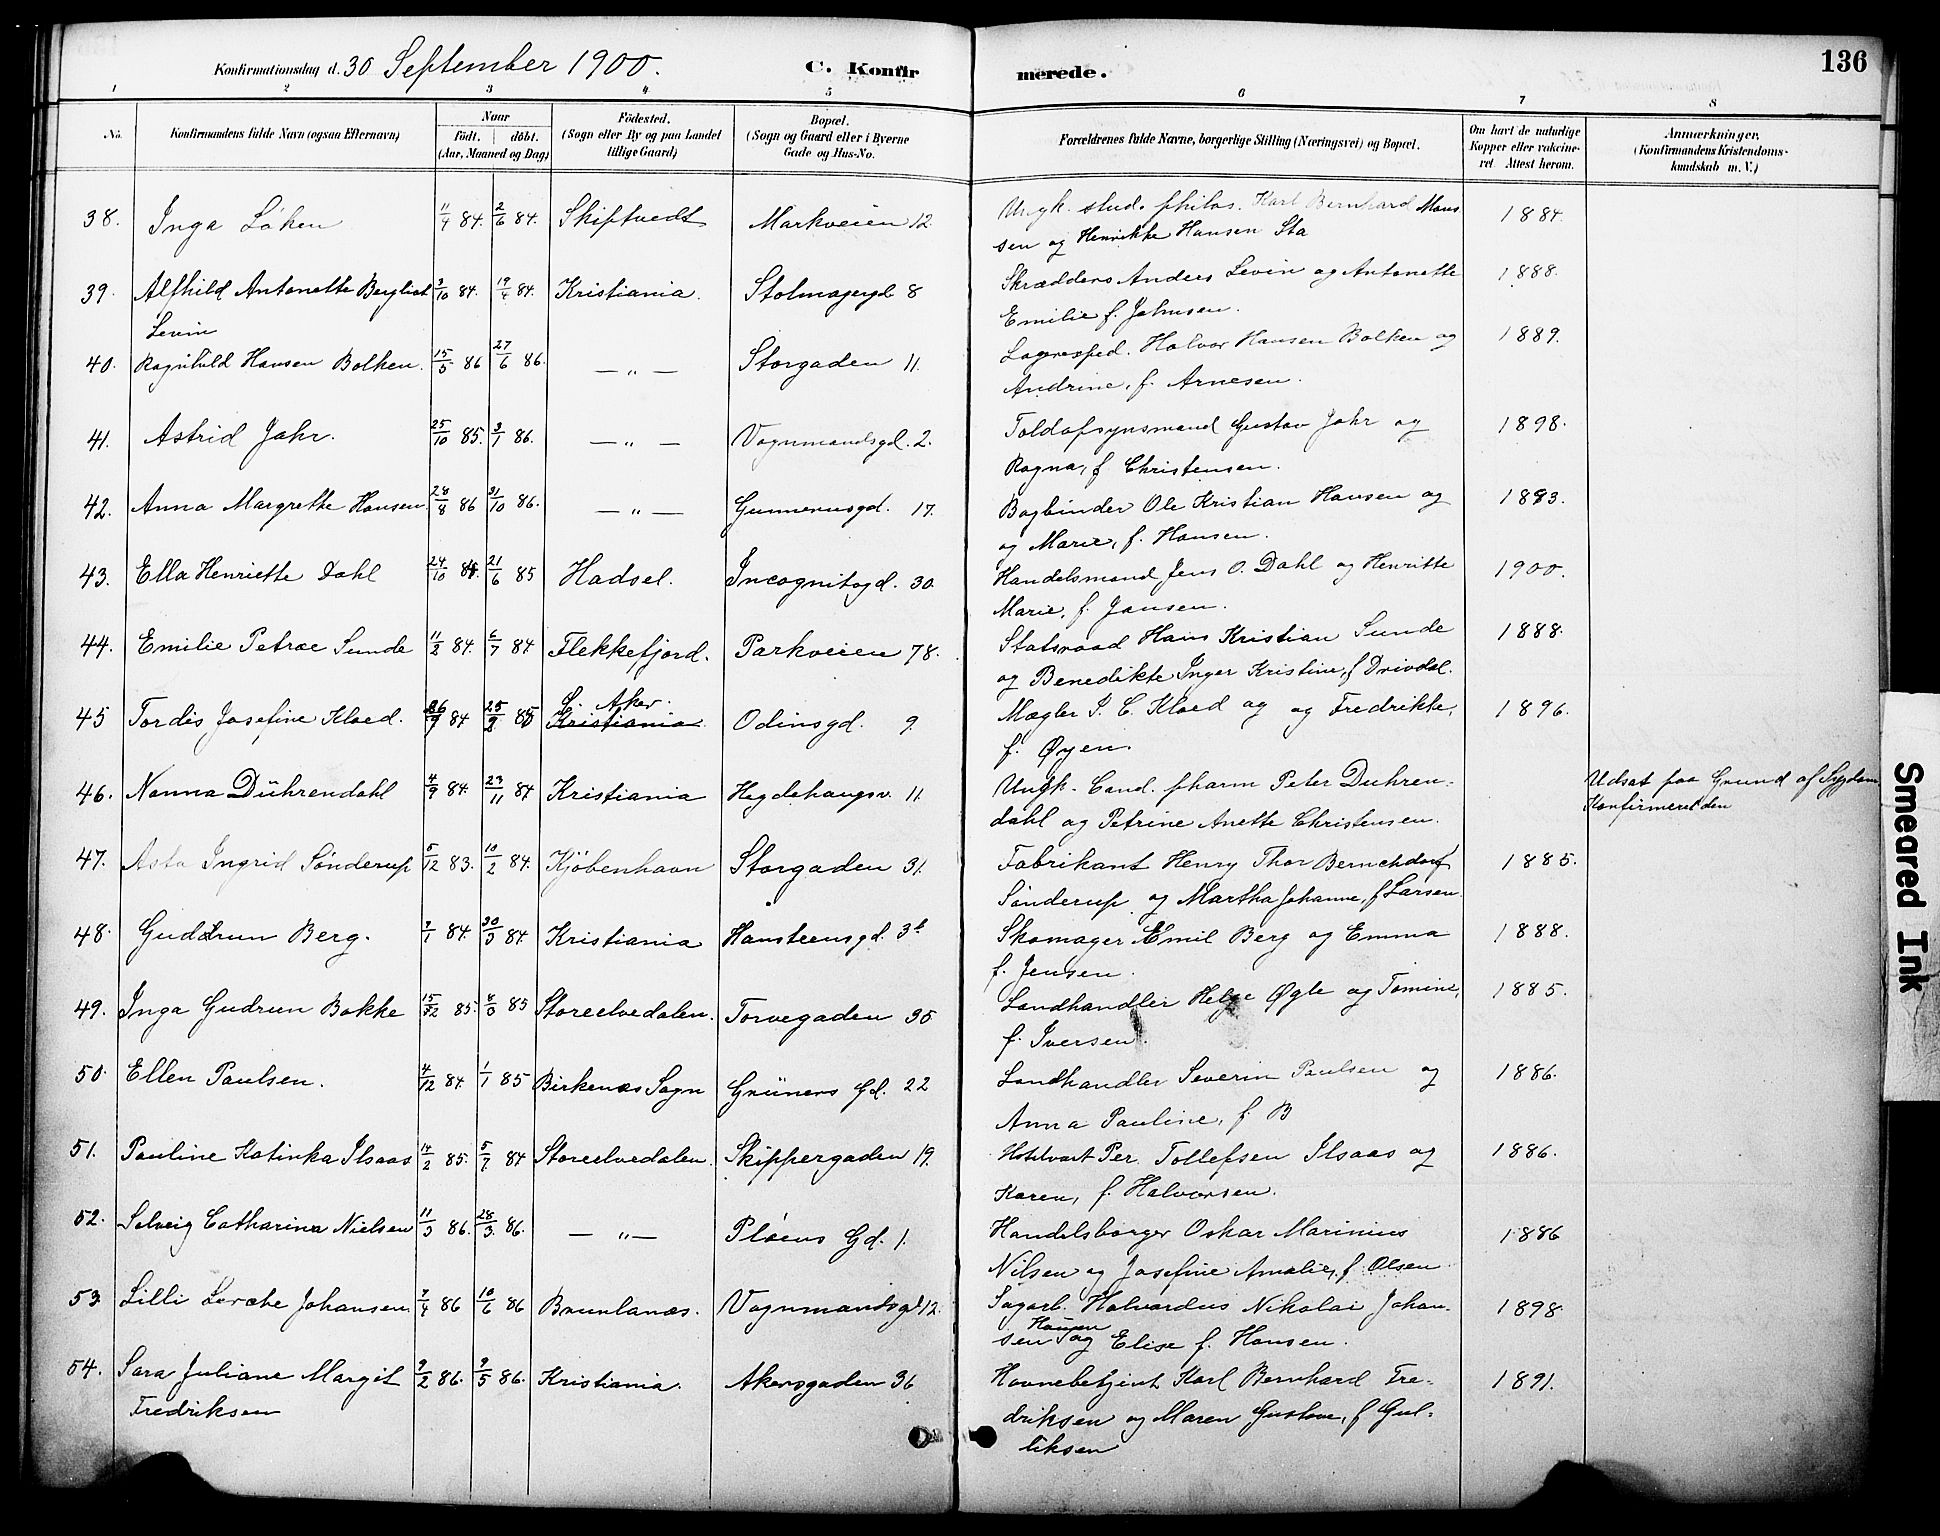 Konfirmationsdag d. 30 September 1900. C. Konfirmerede. 136
1 2 3 4 5 6 7 8
No. Konfirmandens fulde Navn (ogsaa Efternavn) Naar født. døbt. (Aar, Maaned og Dag) Fødested. (Sogn eller By og paa Landet tillige Gaard) Bopæl. (Sogn og Gaard eller i Byerne Gade og Hus-No. Forældrenes fulde Navne, borgerlige Stilling (Næringsvei) og Bopæl. Om havt de naturlige Kopper eller vakcineret. Attest herom. Anmærkninger. (Konfirmandens Kristendomskundskab m. V.)
38. Inga Löken 11/4 84. 2/6 84. Skiftvedt Markveien 12. Ungk. stud. philos. Karl Bernhard Mons 1884.
sen og Henrikke Hansen Sta
39. Alfhild Antonette Bergliot 3/10 84. 19/4 84. Kristiania. Stolmagergd. 8 Skrædders Anders Levin og Antonette 1888.
Levin Emilie f. Johnsen.
40. Ragnhild Hansen Bolken. 15/5 86 27/6 86. — " — Storgaden 11. Lagerexped. Halvor Hansen Bolken og 1889.
Andrine, f. Arnesen.
41. Astrid Jahr. 25/10 85. 3/1 86. — " — Vognmandsgd. 2. Toldopsynsmand Gustav Jahr og 1898.
Ragna, f. Christensen.
42. Anna Margrethe Hansen 28/8 86 31/10 86. — " — Gunnerusgd. 17. Bogbinder Ole Kristian Hansen og 1893.
og Marie, f. Hansen.
43. Ella Henriette Dahl 24/10 84. 21/6 85 Hadsel. Incognitogd. 30. Handelsmand Jens O. Dahl og Henritte 1900.
Marie, f. Jansen.
44. Emilie Petrae Sunde 11/2 84. 6/7 84 Flekkefjord. Parkveien 78. Statsraad Hans Kristian Sunde 1888.
og Benedikte Inger Kristine, f Drivdal.
45 Tordis Josefine Kloed. 26/9 84 25/2 85 Kristiania V. Aker. Odinsgd. 9. Mægler P. C. Kloed og og Fredrikke, 1896.
f. Øyen.
46. Nanna Dührendahl 4/9 84. 23/11 84 Kristiania Hegdehaugsv. 11. Ungk. Cand. pharm Peter Duhren- Udsat paa Grund af Sygdom
dahl og Petrine Anette Christensen. Konfirmeret den
47. Asta Ingrid Sønderup 5/12 83. 10/2 84. Kjöbenhavn Storgaden 31. Fabrikant Henry Thor Bernchdorf 1885.
Sönderup og Martha Johanne, f Larsen.
48. Guddrun Berg. 3/1 84. 30/3 84. Kristiania Hansteensgd. 3b Skomager Emil Berg og Emma 1888.
f. Jensen.
49. Inga Gudrun Bakke 15/12 85. 8/3 85 Storeelvedalen. Torvegaden 35 Landhandler Helge Øgle og Tomine, 1885.
f. Iversen.
50. Ellen Paulsen. 4/12 84 1/1 85 Birkenæs Sogn Grüners Gd. 22 Landhandler Severin Paulsen og 1886.
Anna Pauline, f. B
51. Pauline Katinka Ilsaas 14/2 85. 5/7 84 Storeelvedalen. Skippergaden 19. Hotelvært Per Tollefsen Ilsaas og 1886.
Karen, f. Halvorsen.
52. Solveig Catharina Nielsen 11/3 86. 28/3 86. — " — Pløens Gd. 1. Handelsborger Oskar Marinius 1886
Nilsen og Josefine Amalie, f. Olsen
53. Lilli Lerche Johansen 7/4 86 10/6 86 Brunlanæs. Vognmandsgd. 12. Sagarb. Halvardus Nikolai Johan- 1898.
sen Hansen og Elise f. Hansen.
54. Sara Juliane Margit 9/2 86. 9/5 86. Kristiania. Akersgaden 36 Havnebetjent Karl Bernhard Fre- 1891.
Fredriksen driksen og Maren Gustava, f Gul-
liksen
Smeared Ink